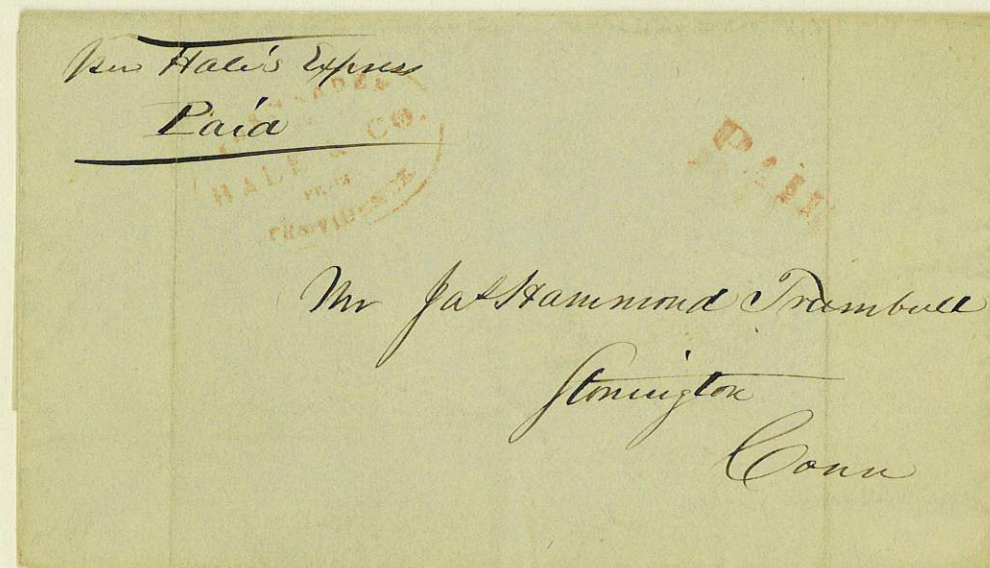 Per Hale's Express
Paid
FORWARDED
HALE & CO.
FROM
PROVIDENCE
PAID
Mr Jas Hammond Trumbull
Stonington
Conn